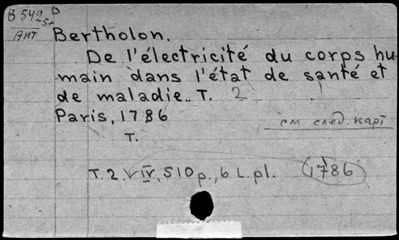 В 542 D
Ант
Bertholon.
De l'électricité du corps hu-
main dans l'état de santé et
de maladie.. T. 2
Paris, 1786
см след. карт
T.
T. 2. VIV, 510 p., 6 L. pl. (1786)